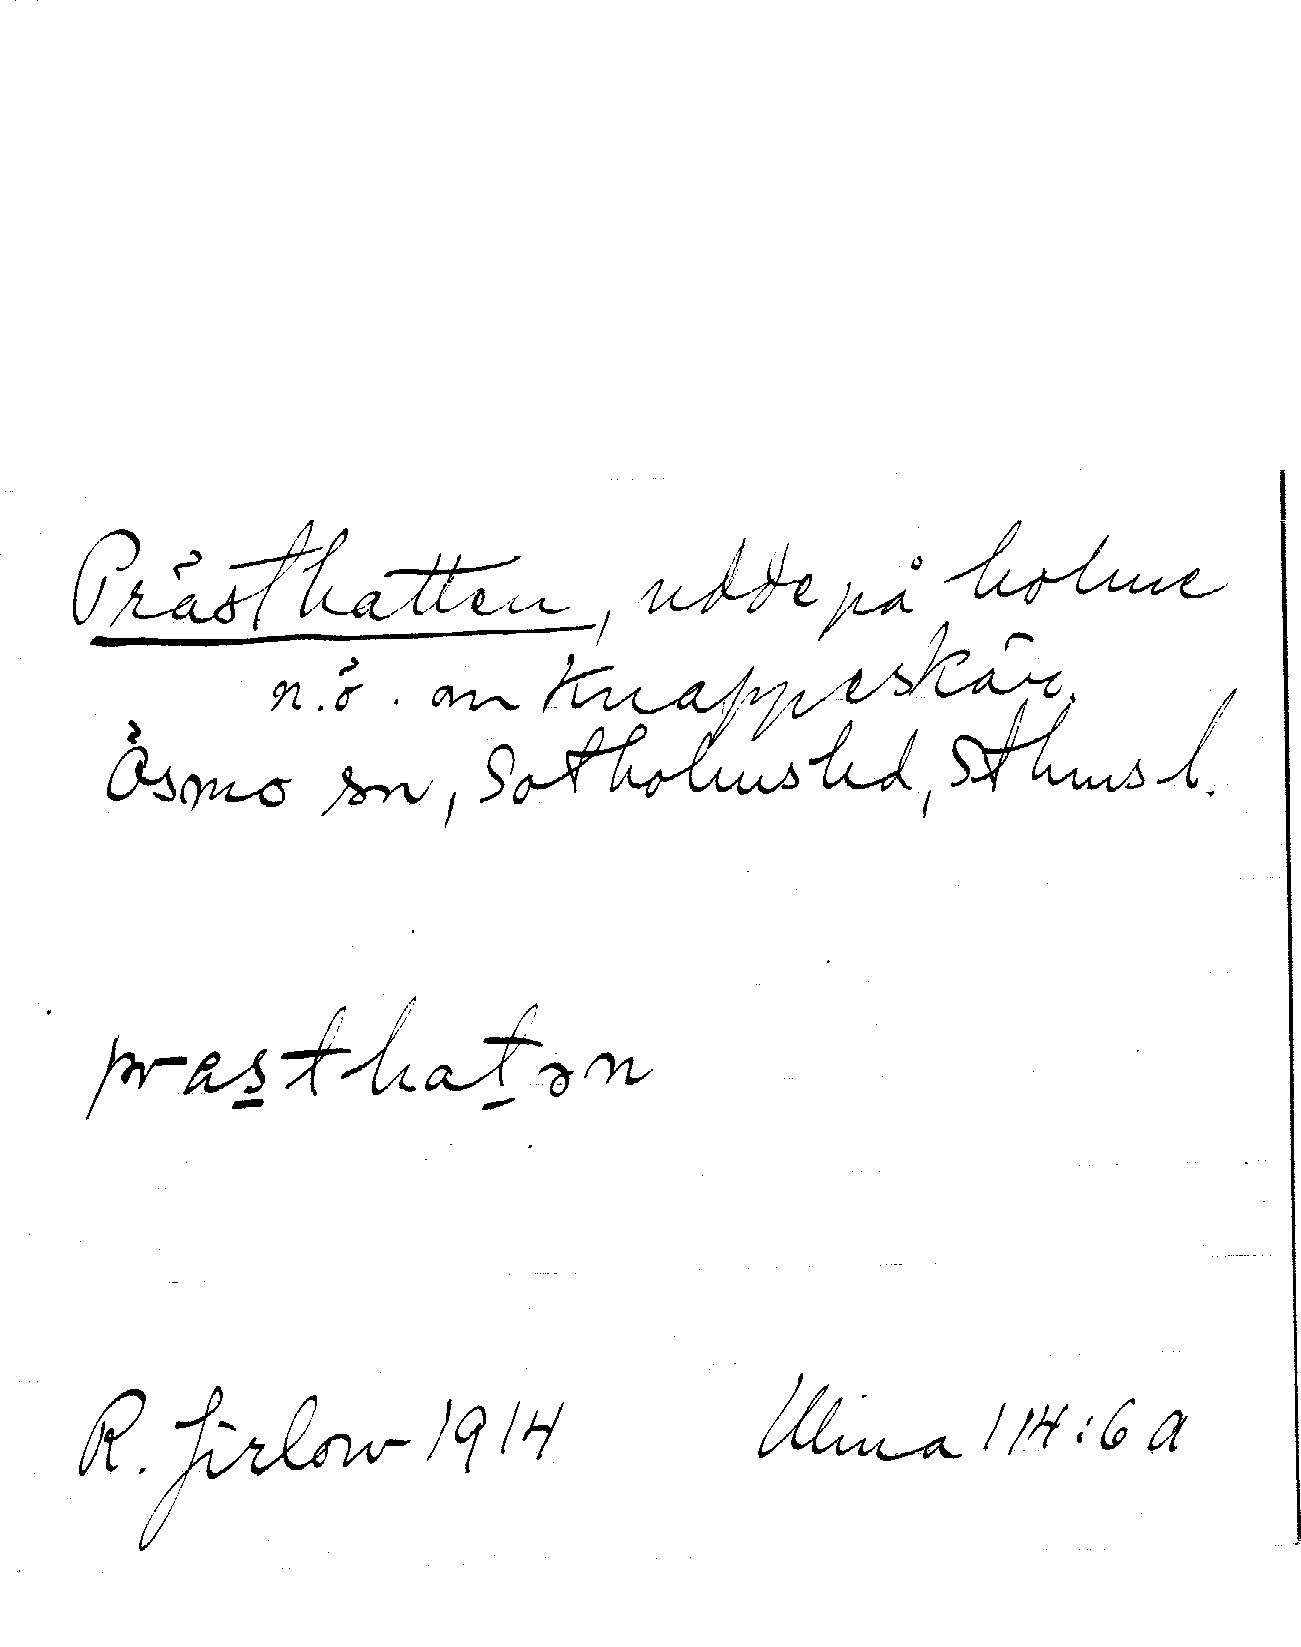 Prästhatten, udde på holme
n.ö. om Knappeskär.
Ösmo sn, Sotholms hd, Sthms l.
prasthatən
R. Jirlow 1914 Ulma 114:6 a